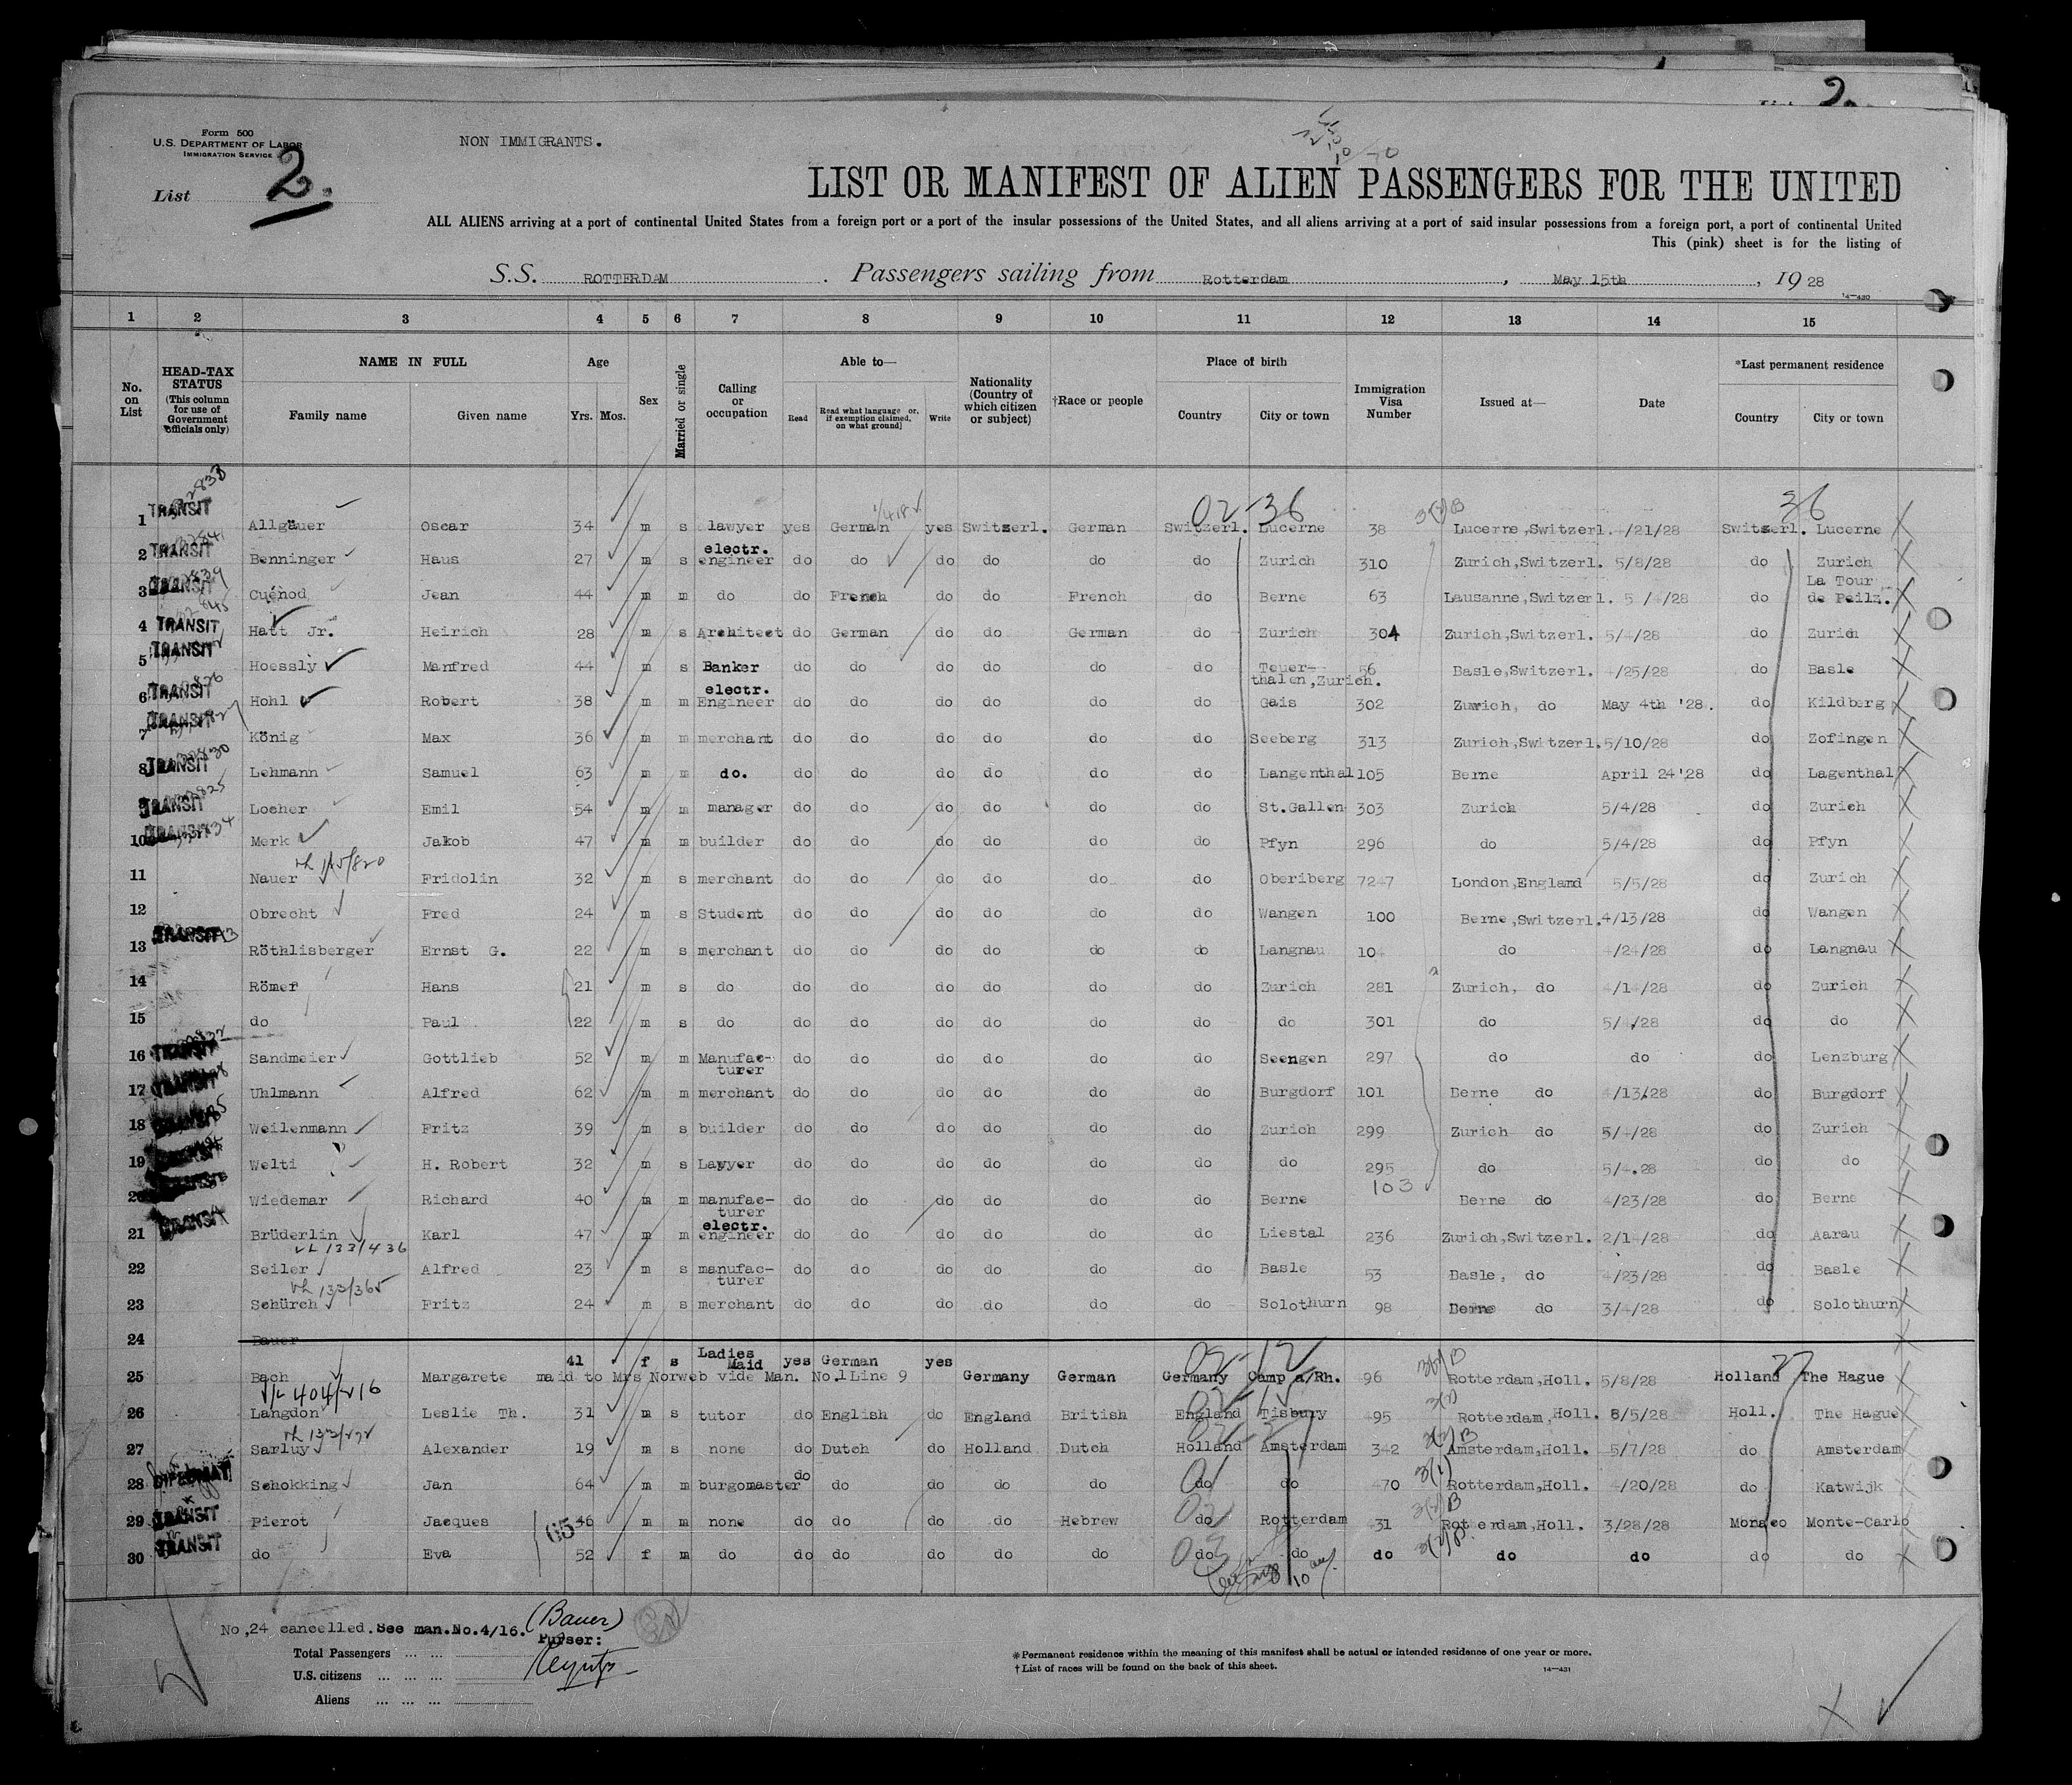 Form 500
U.S. DEPARTMENT OF LABOR
IMMIGRATION SERVICE
NON IMMIGRANTS.
List 2.
2
LIST OR MANIFEST OF ALIEN PASSENGERS FOR THE UNITED
ALL ALIENS arriving at a port of continental United States from a foreign port or a port of the insular possessions of the United States, and all aliens arriving at a port of said insular possessions from a foreign port, a port of continental United
This (pink) sheet is for the listing of
S.S. ROTTERDAM. Passengers sailing from Rotterdam, May 15th, 1928
14—430
1 2 3 4 5 6 7 8 9 10 11 12 13 14 15
No. on List HEAD-TAX STATUS (This column for use of Government officials only) NAME IN FULL Family name Given name Age Yrs. Mos. Sex Married or single Calling or occupation Able to— Read Read what language or, if exemption claimed, on what ground] Write Nationality (Country of which citizen or subject) †Race or people Place of birth Country City or town Immigration Visa Number Issued at— Date *Last permanent residence Country City or town
02-36 36
1 TRANSIT Allgäuer Oscar 34 m s lawyer yes German yes Switzerl. German Switzerl. Lucerne 38 Lucerne,Switzerl. 4/21/28 Switzerl. Lucerne
2 TRANSIT Benninger Haus 27 m s electr. engineer do do do do do do Zurich 310 Zurich,Switzerl. 5/8/28 do Zurich
3 TRANSIT Cuénod Jean 44 m m do do French do do French do Berne 63 Lausanne,Switzerl. 5/4/28 do La Tour de Peilz.
4 TRANSIT Hatt Jr. Heirich 28 m s Architect do German do do German do Zurich 304 Zurich,Switzerl. 5/4/28 do Zurich
5 TRANSIT Hoessly Manfred 44 m s Banker do do do do do do Teuer-thalen,Zurich. 56 Basle,Switzerl. 4/25/28 do Basle
6 TRANSIT Hohl Robert 38 m m electr. Engineer do do do do do do Gais 302 Zurich, do May 4th '28. do Kildberg
7 TRANSIT König Max 36 m m merchant do do do do do do Seeberg 313 Zurich,Switzerl. 5/10/28 do Zofingen
8 TRANSIT Lehmann Samuel 63 m m do. do do do do do do Langenthal 105 Berne April 24'28 do Lagenthal
9 TRANSIT Locher Emil 54 m m manager do do do do do do St.Gallen 303 Zurich 5/4/28 do Zurich
10 TRANSIT Merk Jakob 47 m m builder do do do do do do Pfyn 296 do 5/4/28 do Pfyn
11 Nauer Fridolin 32 m s merchant do do do do do do Oberiberg 7247 London,England 5/5/28 do Zurich
12 Obrecht Fred 24 m s Student do do do do do do Wangen 100 Berne,Switzerl. 4/13/28 do Wangen
13 TRANSIT Röthlisberger Ernst G. 22 m s merchant do do do do do do Langnau 104 do 4/24/28 do Langnau
14 Römer Hans 21 m s do do do do do do do Zurich 281 Zurich, do 4/14/28 do Zurich
15 do Paul 22 m s do do do do do do do do 301 do 5/4/28 do do
16 TRANSIT Sandmeier Gottlieb 52 m m Manufac-turer do do do do do do Seengen 297 do do do Lenzburg
17 TRANSIT Uhlmann Alfred 62 m m merchant do do do do do do Burgdorf 101 Berne do 4/13/28 do Burgdorf
18 TRANSIT Weilenmann Fritz 39 m s builder do do do do do do Zurich 299 Zurich do 5/4/28 do Zurich
19 Welti H. Robert 32 m s Lawyer do do do do do do do 295 do 5/4.28 do do
20 Wiedemar Richard 40 m m manufac-turer do do do do do do Berne 103 Berne do 4/23/28 do Berne
21 TRANSIT Brüderlin Karl 47 m m electr. engineer do do do do do do Liestal 236 Zurich,Switzerl. 2/14/28 do Aarau
22 Seiler Alfred 23 m s manufac-turer do do do do do do Basle 53 Basle, do 4/23/28 do Basle
23 Schürch Fritz 24 m s merchant do do do do do do Solothurn 98 Berne do 3/4/28 do Solothurn
24 Bauer
25 Bach Margarete 41 f s Ladies Maid yes German yes maid to Mrs Norweb vide Man. No.1 Line 9 Germany German Germany Camp a/Rh. 496 Rotterdam,Holl. 5/8/28 Holland The Hague
26 Langdon Leslie Th. 31 m s tutor do English do England British England Tisbury 495 Rotterdam,Holl. 8/5/28 Holl. The Hague
27 Sarluy Alexander 19 m s none do Dutch do Holland Dutch Holland Amsterdam 342 Amsterdam,Holl. 5/7/28 do Amsterdam
28 DIPLOMAT Schokking Jan 64 m m burgomaster do do do do do do do 470 Rotterdam,Holl. 4/20/28 do Katwijk
29 TRANSIT Pierot Jacques 65 46 m m none do do do do Hebrew do Rotterdam 431 Rotterdam,Holl. 3/28/28 Monaco Monte-Carlo
30 TRANSIT do Eva 52 f m do do do do do do do do do do do do do
No,24 cancelled. See man.No.4/16. (Bauer)
Purser:
Total Passengers
U.S. citizens
Aliens
*Permanent residence within the meaning of this manifest shall be actual or intended residence of one year or more.
†List of races will be found on the back of this sheet.
14—431